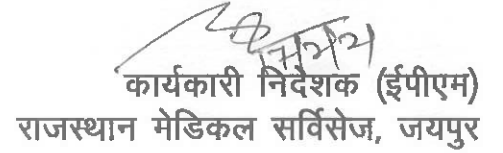 कार्यकारी निदेशक (ईपीएम)
राजस्थान मेडिकल सर्विसेज, जयपुर